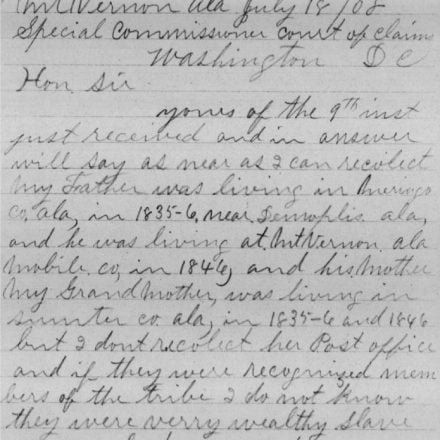 Mt Vernon Ala July 18/08
Special Commissioner court of claims
Washington D C
Hon. Sir
yours of the 9th inst
just received and in answer
will say as near as I can recolect
my Father was living in Merengo
co, ala, in 1835-6, near Demoplis ala,
and he was living at, Mt Vernon, ala
Mobile. co, in 1846, and his Mother
My GrandMother, was living in
sumter co. ala, in 1835-6 and 1846
but I dont recolect her Post office
and if they were recognized mem
bers of the tribe I do not know
they were verry wealthy slave